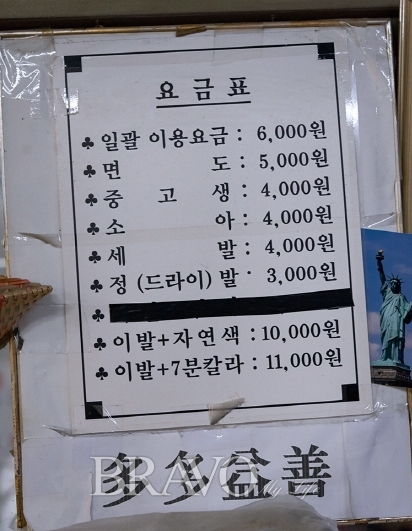 요금표
♣ 일괄 이용요금 : 6,000원
♣ 면 도 : 5,000원
♣ 중 고 생 : 4,000원
♣ 소 아 : 4,000원
♣ 세 발 : 4,000원
♣ 정 (드라이) 발 : 3,000원
♣
♣ 이발+자연색 : 10,000원
♣ 이발+7분칼라 : 11,000원
多多益善
BRAVO My Life